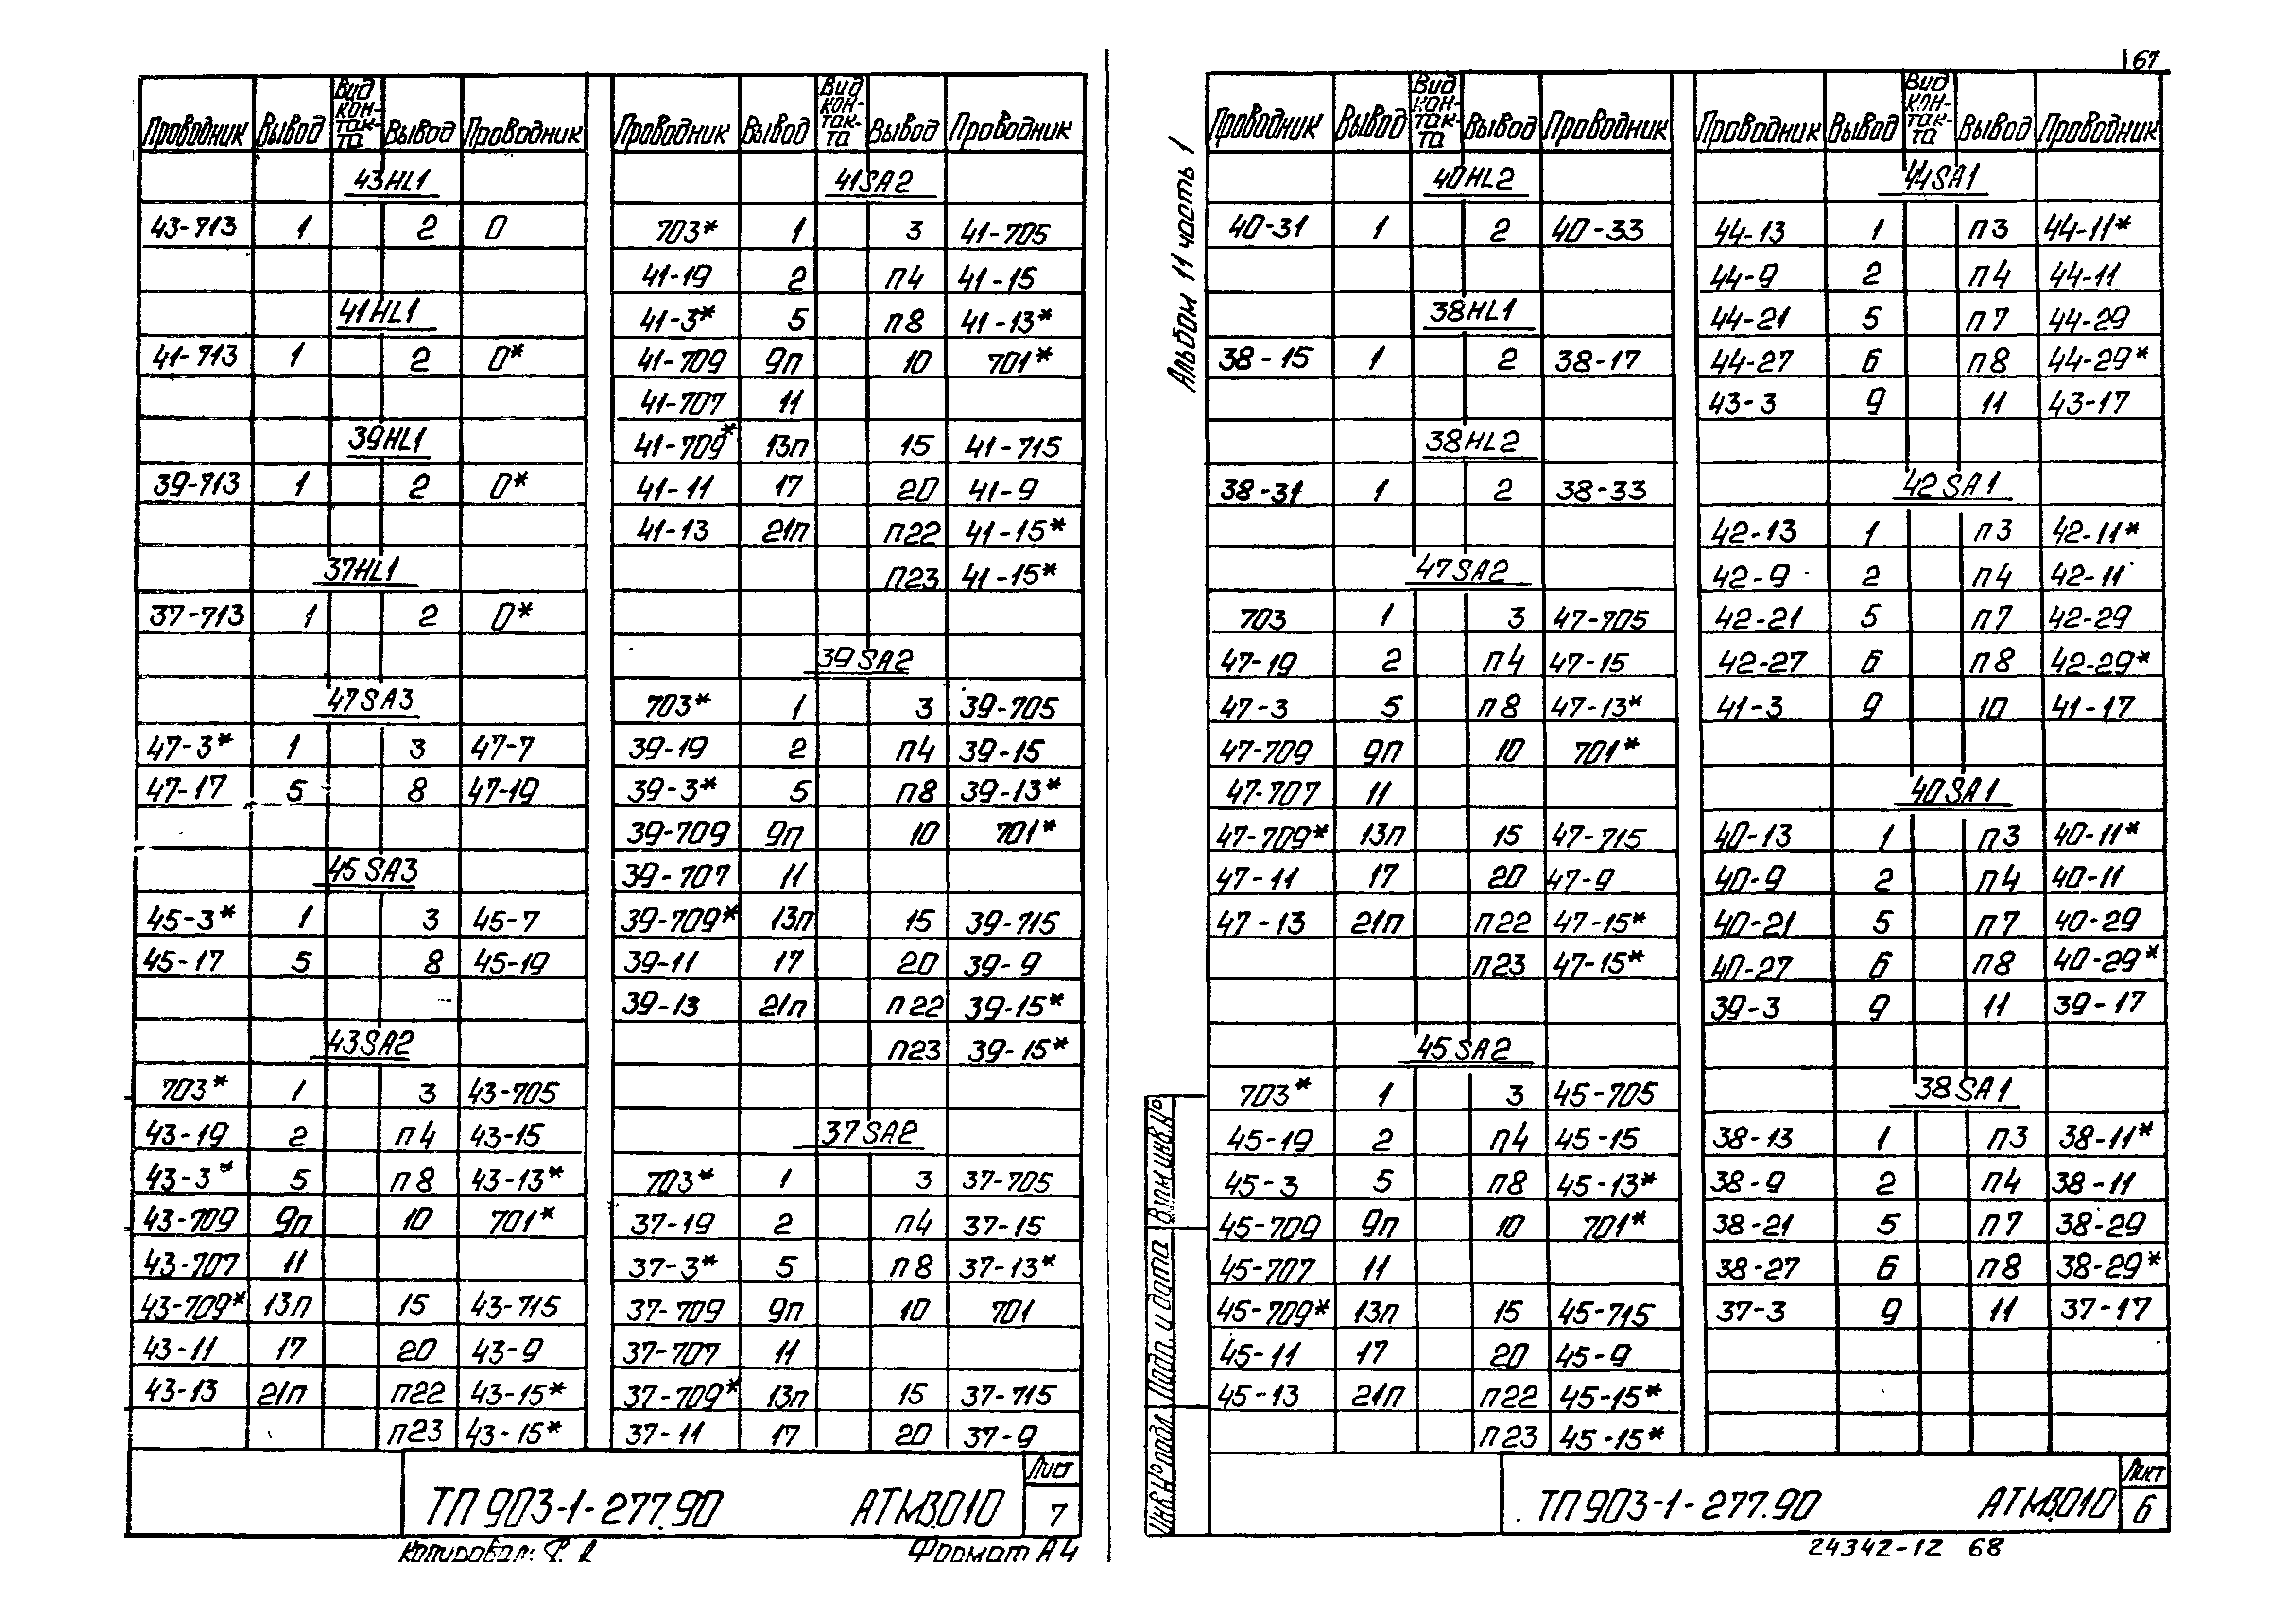 67
Проводник Вывод Вид кон-так-та Вывод Проводник
43HL1
43-713 1 2 0
41HL1
41-713 1 2 0*
39HL1
39-713 1 2 0*
37HL1
37-713 1 2 0*
47SA3
47-3* 1 3 47-7
47-17 5 8 47-19
45SA3
45-3* 1 3 45-7
45-17 5 8 45-19
43SA2
703* 1 3 43-705
43-19 2 п4 43-15
43-3* 5 п8 43-13*
43-709 9п 10 701*
43-707 11
43-709* 13п 15 43-715
43-11 17 20 43-9
43-13 21п п22 43-15*
п23 43-15*
Проводник Вывод Вид кон-так-та Вывод Проводник
41SA2
703* 1 3 41-705
41-19 2 п4 41-15
41-3* 5 п8 41-13*
41-709 9п 10 701*
41-707 11
41-709* 13п 15 41-715
41-11 17 20 41-9
41-13 21п п22 41-15*
п23 41-15*
39SA2
703* 1 3 39-705
39-19 2 п4 39-15
39-3* 5 п8 39-13*
39-709 9п 10 701*
39-707 11
39-709* 13п 15 39-715
39-11 17 20 39-9
39-13 21п п22 39-15*
п23 39-15*
37SA2
703* 1 3 37-705
37-19 2 п4 37-15
37-3* 5 п8 37-13*
37-709 9п 10 701
37-707 11
37-709* 13п 15 37-715
37-11 17 20 37-9
ТП 903-1-277.90 АТМ3.010
Лист
7
Копировал:
Формат А4
Альбом 11 часть 1
Проводник Вывод Вид кон-так-та Вывод Проводник
40HL2
40-31 1 2 40-33
38HL1
38-15 1 2 38-17
38HL2
38-31 1 2 38-33
47SA2
703 1 3 47-705
47-19 2 п4 47-15
47-3 5 п8 47-13*
47-709 9п 10 701*
47-707 11
47-709* 13п 15 47-715
47-11 17 20 47-9
47-13 21п п22 47-15*
п23 47-15*
45SA2
703* 1 3 45-705
45-19 2 п4 45-15
45-3 5 п8 45-13*
45-709 9п 10 701*
45-707 11
45-709* 13п 15 45-715
45-11 17 20 45-9
45-13 21п п22 45-15*
п23 45-15*
Проводник Вывод Вид кон-так-та Вывод Проводник
44SA1
44-13 1 п3 44-11*
44-9 2 п4 44-11
44-21 5 п7 44-29
44-27 6 п8 44-29*
43-3 9 11 43-17
42SA1
42-13 1 п3 42-11*
42-9 2 п4 42-11
42-21 5 п7 42-29
42-27 6 п8 42-29*
41-3 9 10 41-17
40SA1
40-13 1 п3 40-11*
40-9 2 п4 40-11
40-21 5 п7 40-29
40-27 6 п8 40-29*
39-3 9 11 39-17
38SA1
38-13 1 п3 38-11*
38-9 2 п4 38-11
38-21 5 п7 38-29
38-27 6 п8 38-29*
37-3 9 11 37-17
Взам инв.№
Подп. и дата
Инв.№ подл
ТП 903-1-277.90 АТМ3.010
Лист
6
24342-12 68